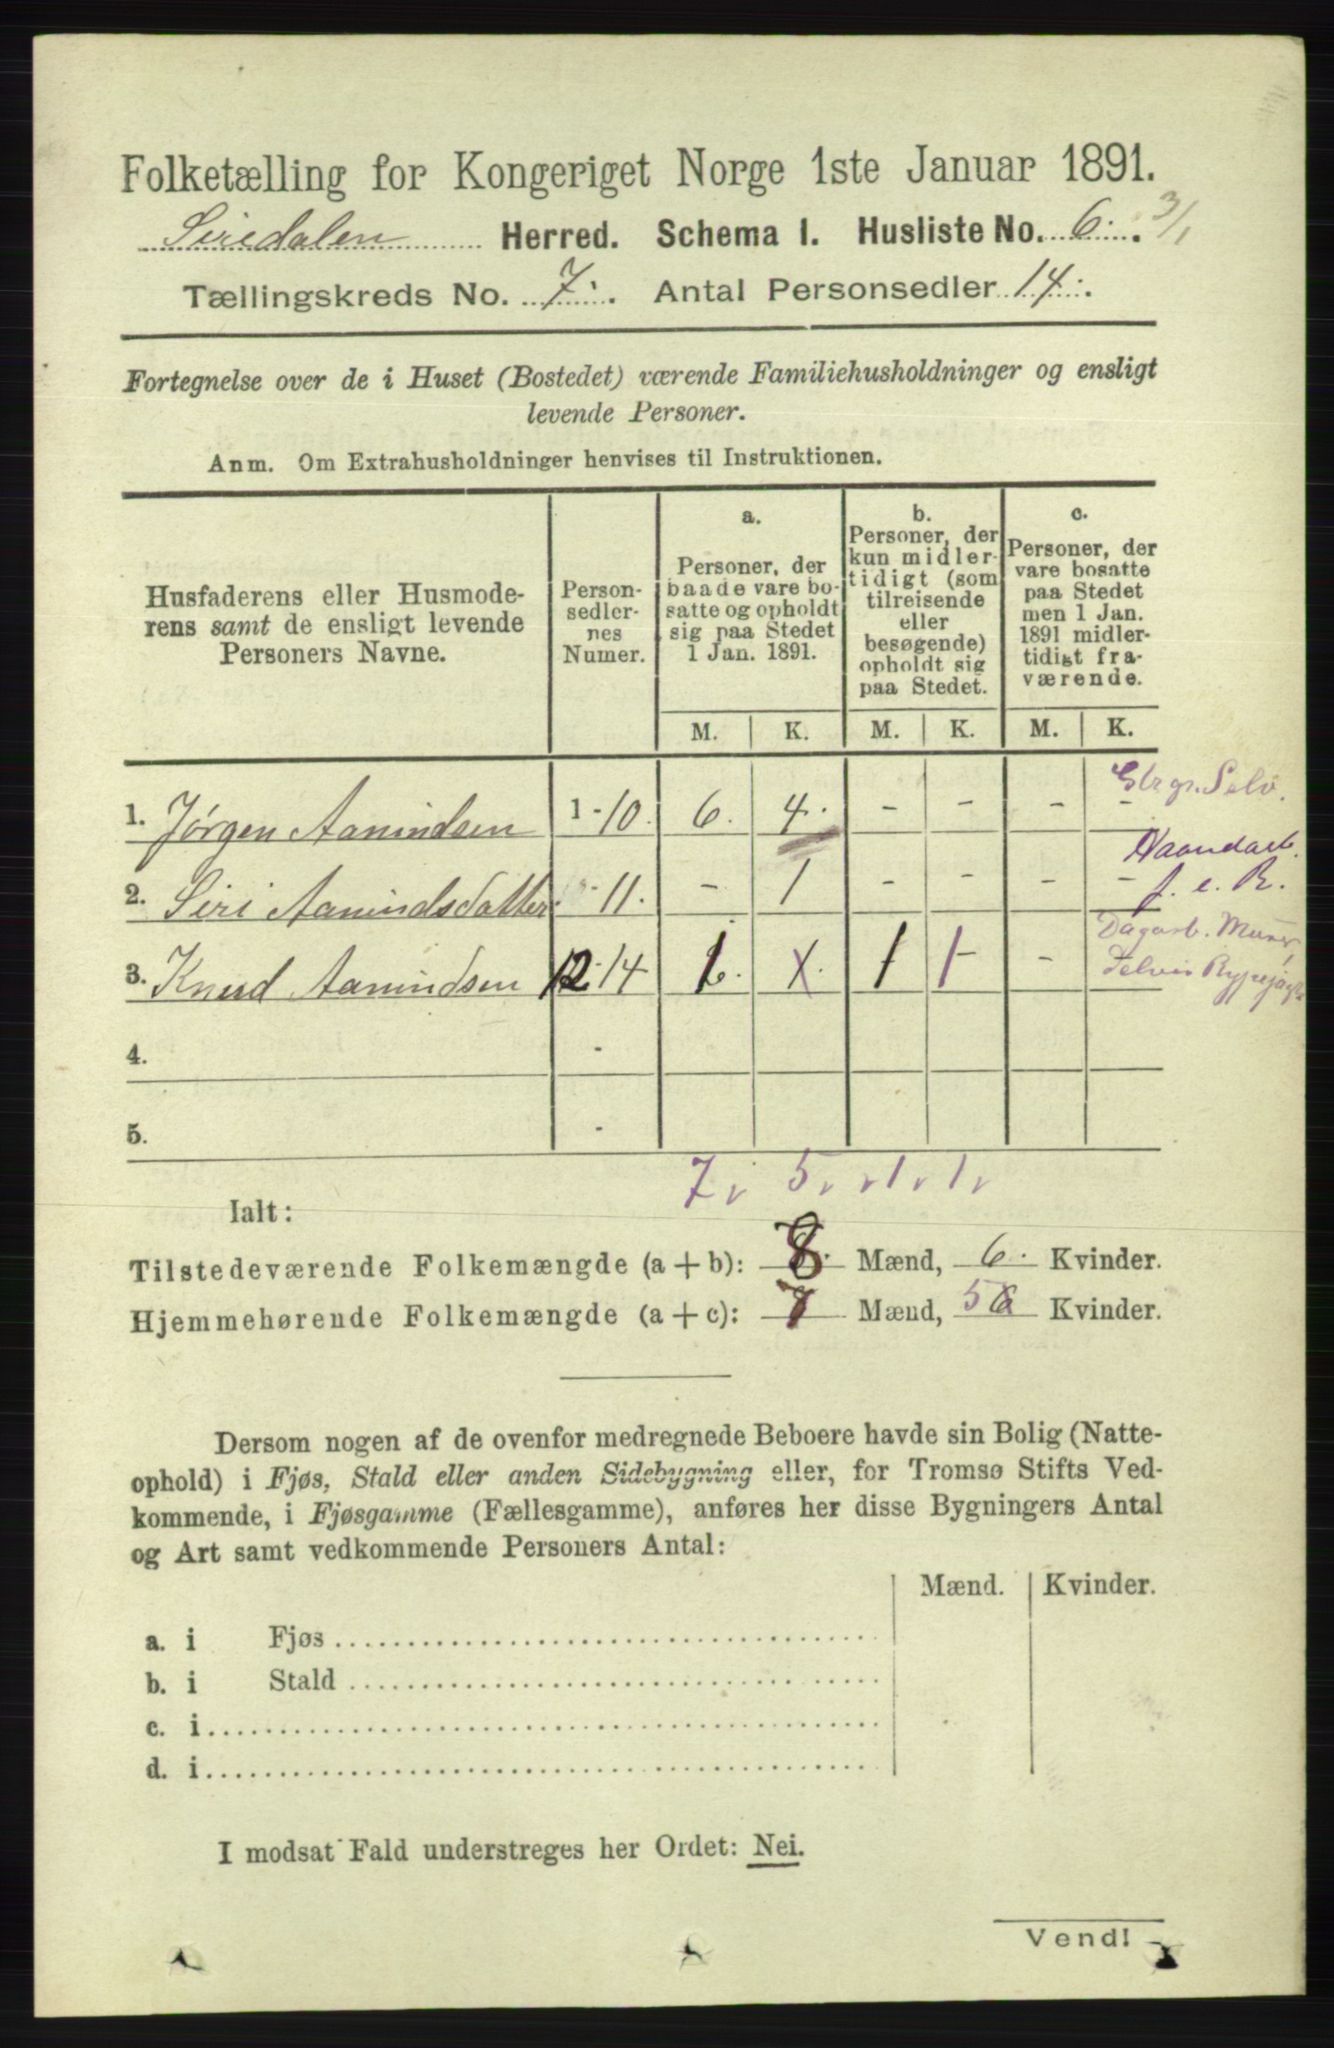 Folketælling for Kongeriget Norge 1ste Januar 1891.
Siredalen Herred. Schema I. Husliste No. 6. 3/1
Tællingskreds No. 7. Antal Personsedler 14.
Fortegnelse over de i Huset (Bostedet) værende Familiehusholdninger og ensligt
levende Personer.
Anm. Om Extrahusholdninger henvises til Instruktionen.
Husfaderens eller Husmode-
rens samt de ensligt levende
Personers Navne.
Person-
sedler-
nes
Numer.
a.
Personer, der
baade vare bo-
satte og opholdt
sig paa Stedet
1 Jan. 1891.
b.
Personer, der
kun midler-
tidigt (som
tilreisende
eller
besøgende)
opholdt sig
paa Stedet.
c.
Personer, der
vare bosatte
paa Stedet
men 1 Jan.
1891 midler-
tidigt fra-
værende.
M. K. M. K. M. K.
1. Jørgen Aanindsen 1-10. 6. 4. - - - - Gbrgr. Selv.
2. Siri Aanindsdatter - 11. - 1 - - - - Haandarb. f. e. R.
3. Knud Aanindsen 12-14 1. X. 1 1 - Dagarb. Murer,
4. -
5. -
7 5 1 1
Ialt:
Tilstedeværende Folkemængde (a + b): 8 Mænd, 6. Kvinder.
Hjemmehørende Folkemængde (a + c): 7 Mænd, 5 Kvinder.
Dersom nogen af de ovenfor medregnede Beboere havde sin Bolig (Natte-
ophold) i Fjøs, Stald eller anden Sidebygning eller, for Tromsø Stifts Ved-
kommende, i Fjøsgamme (Fællesgamme), anføres her disse Bygningers Antal
og Art samt vedkommende Personers Antal:
Mænd. Kvinder.
a. i Fjøs
b. i Stald
c. i
d. i
I modsat Fald understreges her Ordet: Nei.
Vend!